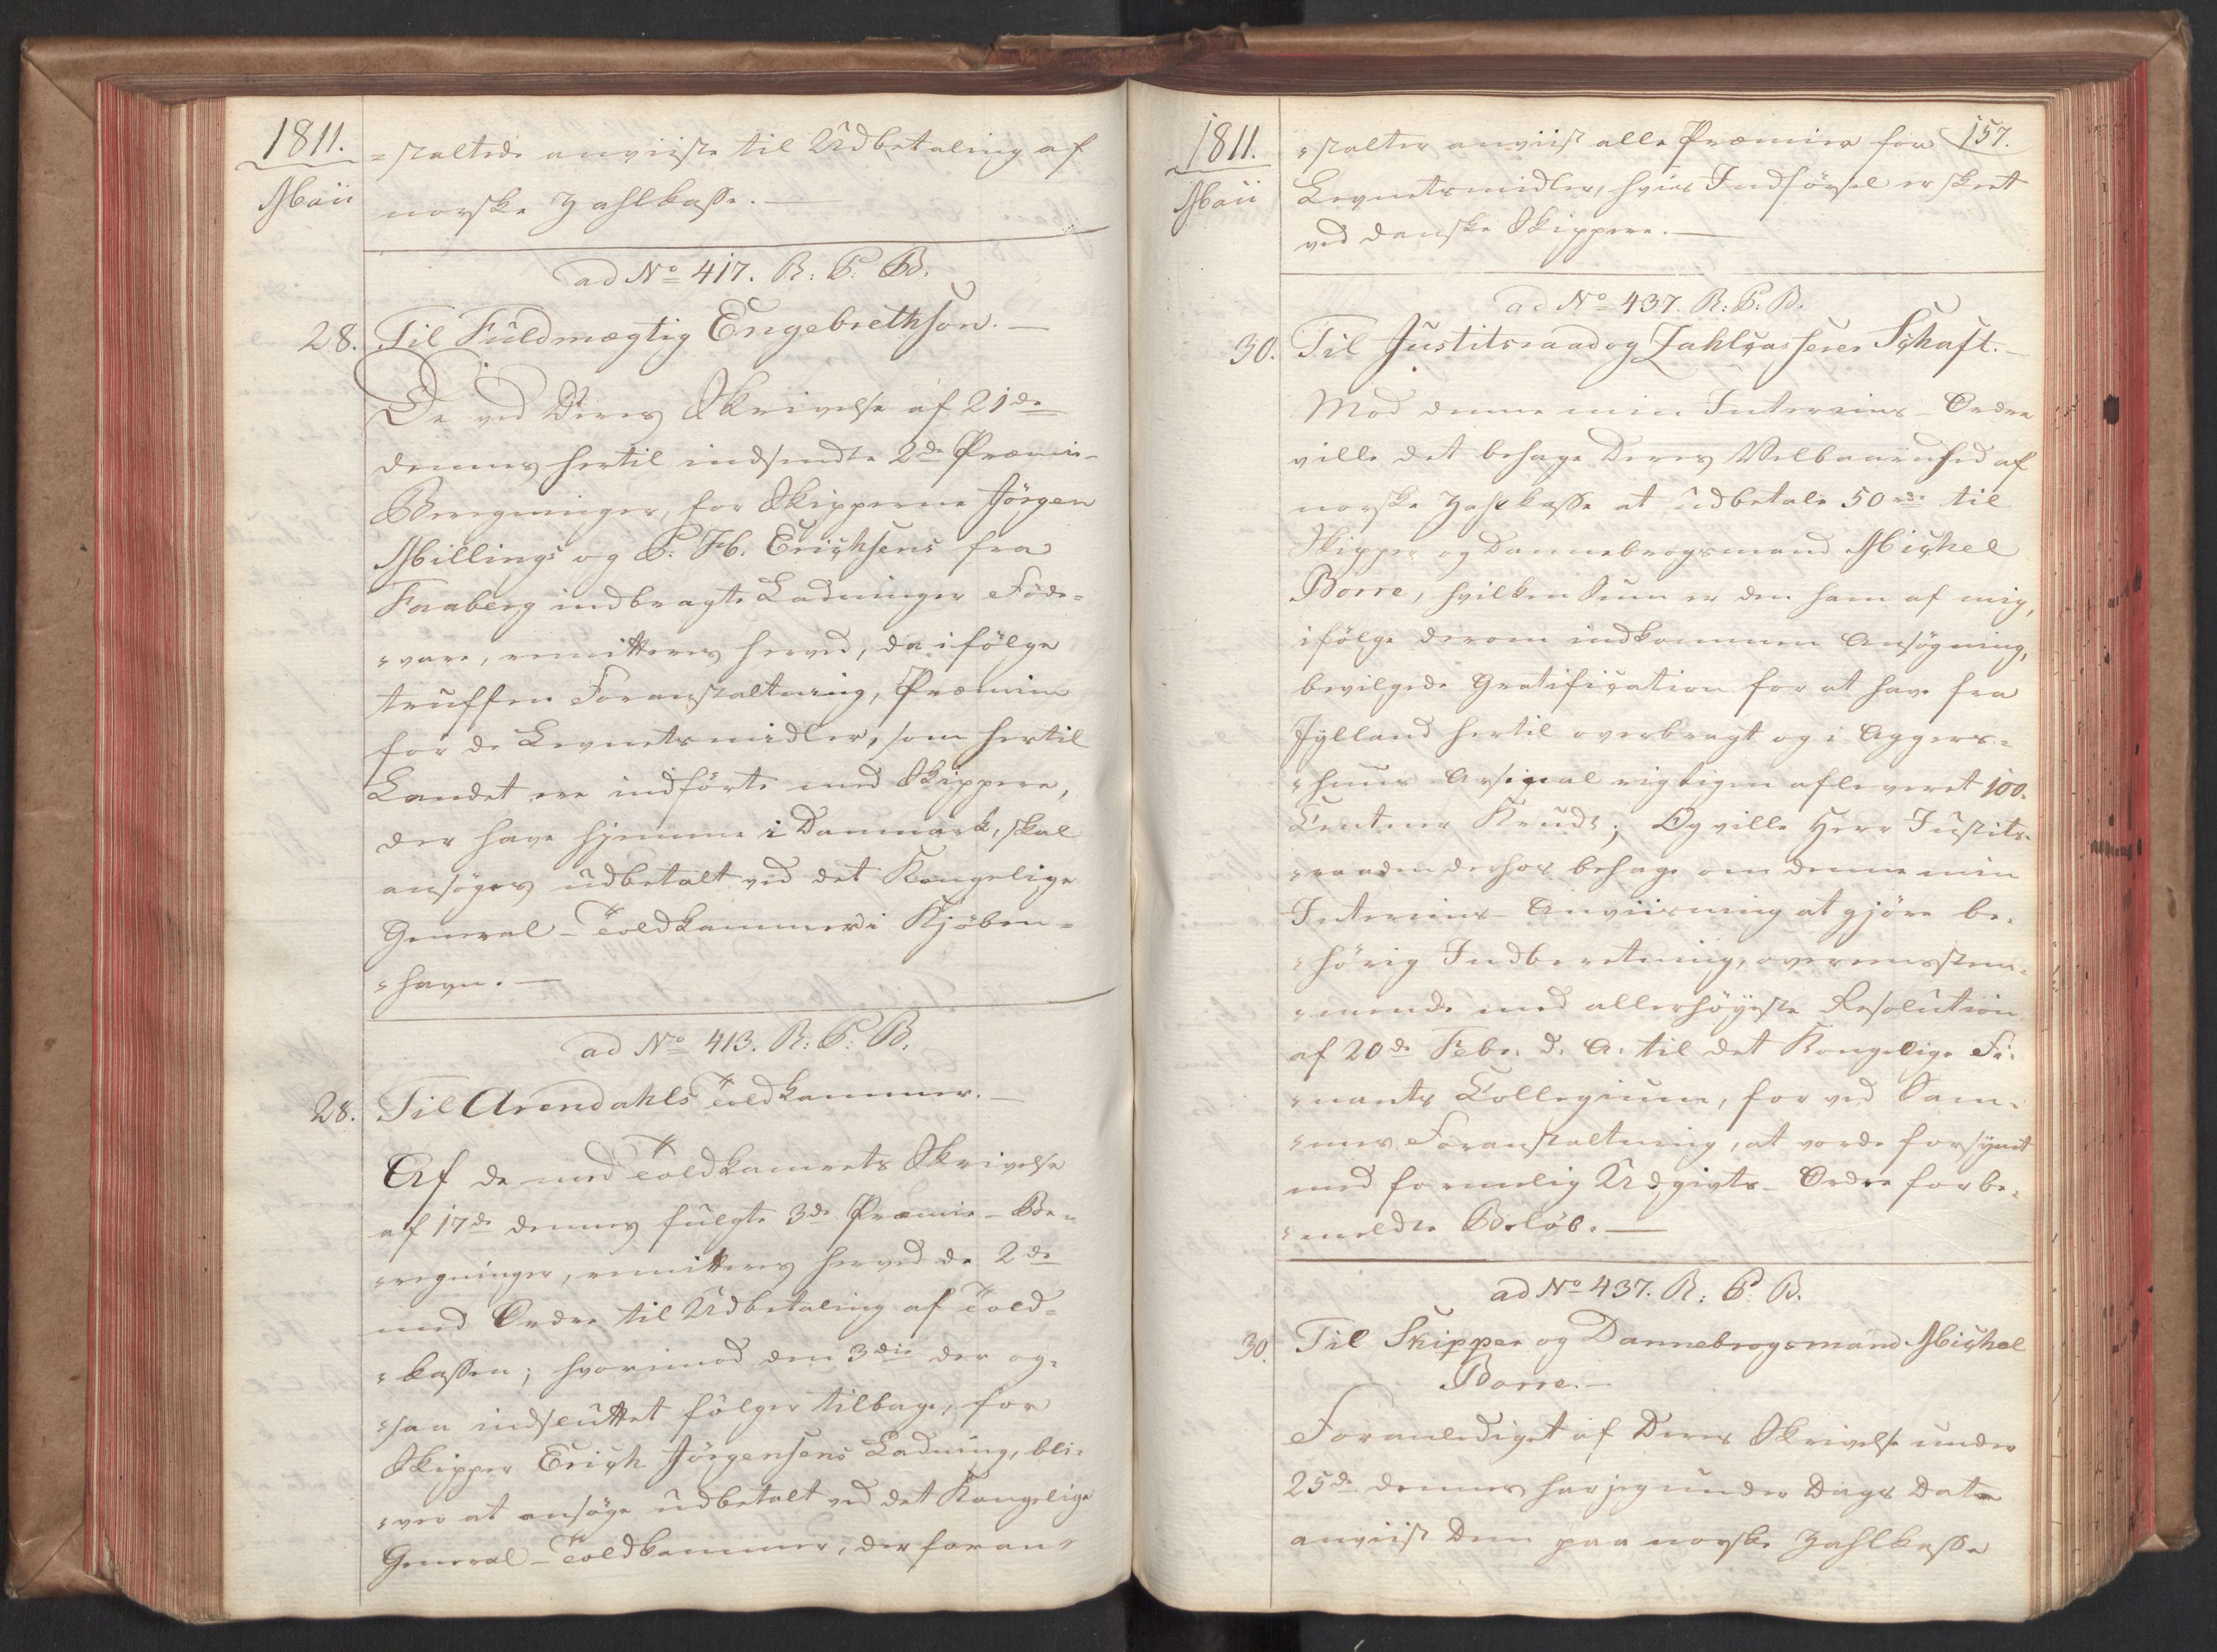 1811.
Maii
=staltede anviiste til Udbetaling af
norske Zahlkasse. —
ad No 417. R: P. B.
28. Til Fuldmægtig Engebrethson. —
De ved Deres Skrivelse af 21de
dennes hertil indsendte 2de Præmie-
Beregninger, for Skipperne Jörgen
Millings og P. H. Erichsens fra
Faaberg indbragte Ladninger Föde=
=vare, remitteres herved, da ifölge
truffen Foranstaltning, Præmien
for de Levnetsmidler, som hertil
Landet ere indförte med Skippere,
der have hjemme i Danmark, skal
ansöges udbetalt ved det Kongelige
General-Toldkammer i Kjöben=
=havn. —
ad No 413. R: P. B.
28. Til Arendahls Toldkammer. —
Af de med Toldkamrets Skrivelse
af 17de dennes fulgte 3de Præmie-Be=
=regninger, remitteres herved de 2de
med Ordre til Udbetaling af Told=
=kassen; hvorimod den 3die der og=
=saa indsluttet fölger tilbage, for
Skipper Erich Jörgensens Ladning, bli=
=ver at ansöge udbetalt ved det Kongelige
General-Toldkammer, der foran=
1811.
Maii
157.
=stalter anviist alle Præmier for
Levnetsmidler, hvis Indförsel er skeet
ved danske Skippere. —
ad No 437. R: P. B.
30. Til Justitsraad og Zahlcasserer Schaft. —
Mod denne min Interims-Ordre
ville det behage Deres Velbaarenhed af
norske Zahlkasse at udbetale 50 rdr til
Skipper og Dannebrogsmand Michel
Borre, hvilken Sum er den ham af mig,
ifölge derom indkommen Ansögning,
bevilgede Gratification for at have fra
Jylland hertil overbragt og i Aggers=
=huus Arsenal rigtigen afleveret 100.
Centner Krudt; Og ville Herr Justits=
=raaden derhos behage om denne min
Interims-Anviisning at gjöre be=
=hörig Indberetning, overensstem=
=mende med allerhöyeste Resolution
af 20de Febr. d. A. til det Kongelige Fi=
=nants Collegium, for ved Sam=
=mes Foranstaltning, at vorde forsynet
med formelig Udgivts-Ordre for be=
=meldte Belöb. —
ad No 437. R: P. B.
30. Til Skipper og Dannebrogsmand Michel
Borre. —
Foranlediget af Deres Skrivelse under
25de dennes har jeg under Dags Dato
anviist Dem paa norske Zahlkasse